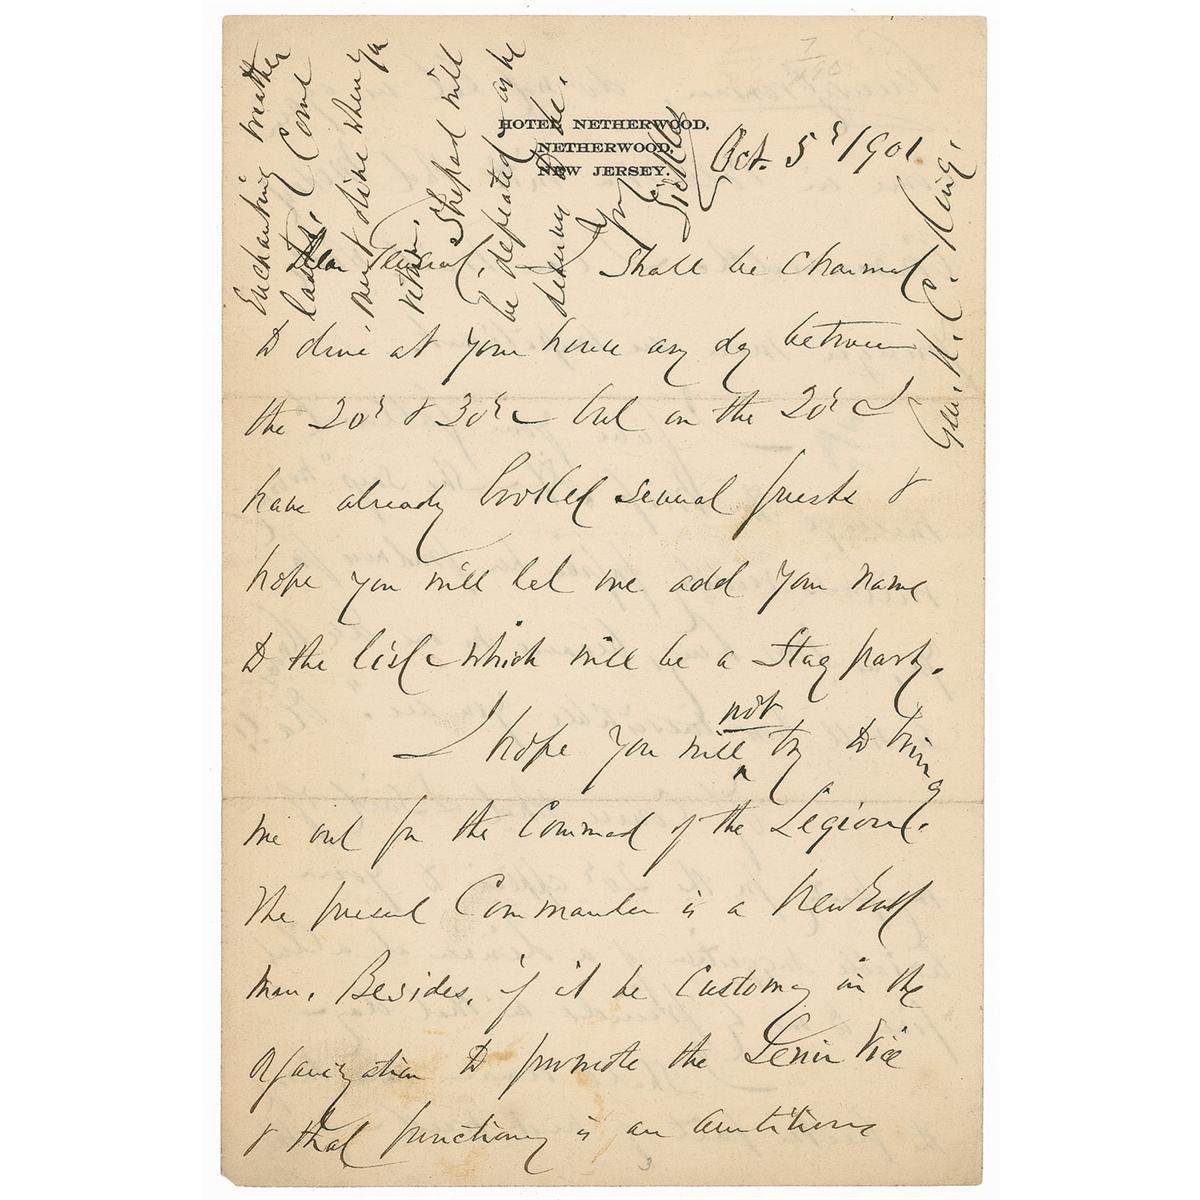 HOTEL NETHERWOOD,
NETHERWOOD,
NEW JERSEY.
Oct. 5th / 901
Dear General, I shall be charmed
to dine at your house any day between
the 20th & 30th – but on the 20th I
have already booked several guests &
hope you will let me add your name
to the list – which will be a Stag party.
I hope you will not try to bring
me out for the Command of the Legion.
The present Commander is a New York
man. Besides, if it be customary in the
organization to promote the Senior Vice
& that functionary is an ambitious
Enchanting weather
Come
out & dine when you
return. Shepard will
be defeated as he
deserves to be.
Yrs
Sickles
Genl. H. C. King.